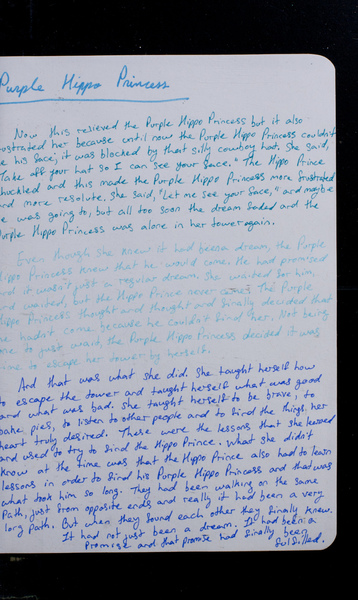 Purple Hippo Princess
Now this relieved the Purple Hippo Princess but it also
frustrated her because until now the Purple Hippo Princess couldn't
see his face; it was blocked by that silly cowboy hat. She said,
"Take off your hat so I can see your face." The Hippo Prince
chuckled and this made the Purple Hippo Princess more frustrated
and more resolute. She said, "Let me see your face," and maybe
he was going to, but all too soon the dream faded and the
Purple Hippo Princess was alone in her tower again.
Even though she knew it had been a dream, the Purple
Hippo Princess knew that he would come. He had promised
and it wasn't just a regular dream. She waited for him,
and waited, but the Hippo Prince never The Purple
Hippo Princess thought and thought and finally decided that
he hadn't come because he couldn't find her. Not being
one to just wait, the Purple Hippo Princess decided it was
time to escape her tower by herself.
And that was what she did. She taught herself how
to escape the tower and taught herself what was good
and what was bad. She taught herself to be brave, to
bake pies, to listen to other people and to find the things her
heart truly desired. These were the lessons that she learned
and used to try to find the Hippo Prince. What she didn't
know at the time was that the Hippo Prince also had to learn
lessons in order to find his Purple Hippo Princess and that was
what took him so long. They had been walking on the same
path, just from opposite ends and really it had been a very
long path. But when they found each other they finally knew.
It had not just been a dream. It had been a
promise and that promise had finally been
fulfilled.